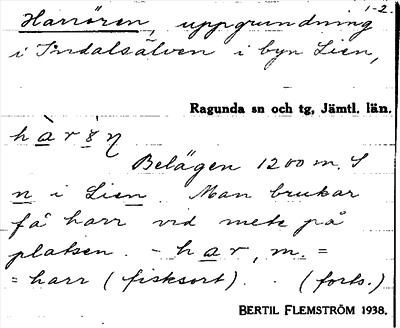 1-2.
Harrören, uppgrundning
i Indalsälven i byn Lien,
Ragunda sn och tg, Jämtl. län.
Belägen 1200 m. S
n i Lien. Man brukar
få harr vid mete på
platsen. - har, m. =
= harr (fisksort). (forts.)
BERTIL FLEMSTRÖM 1938.